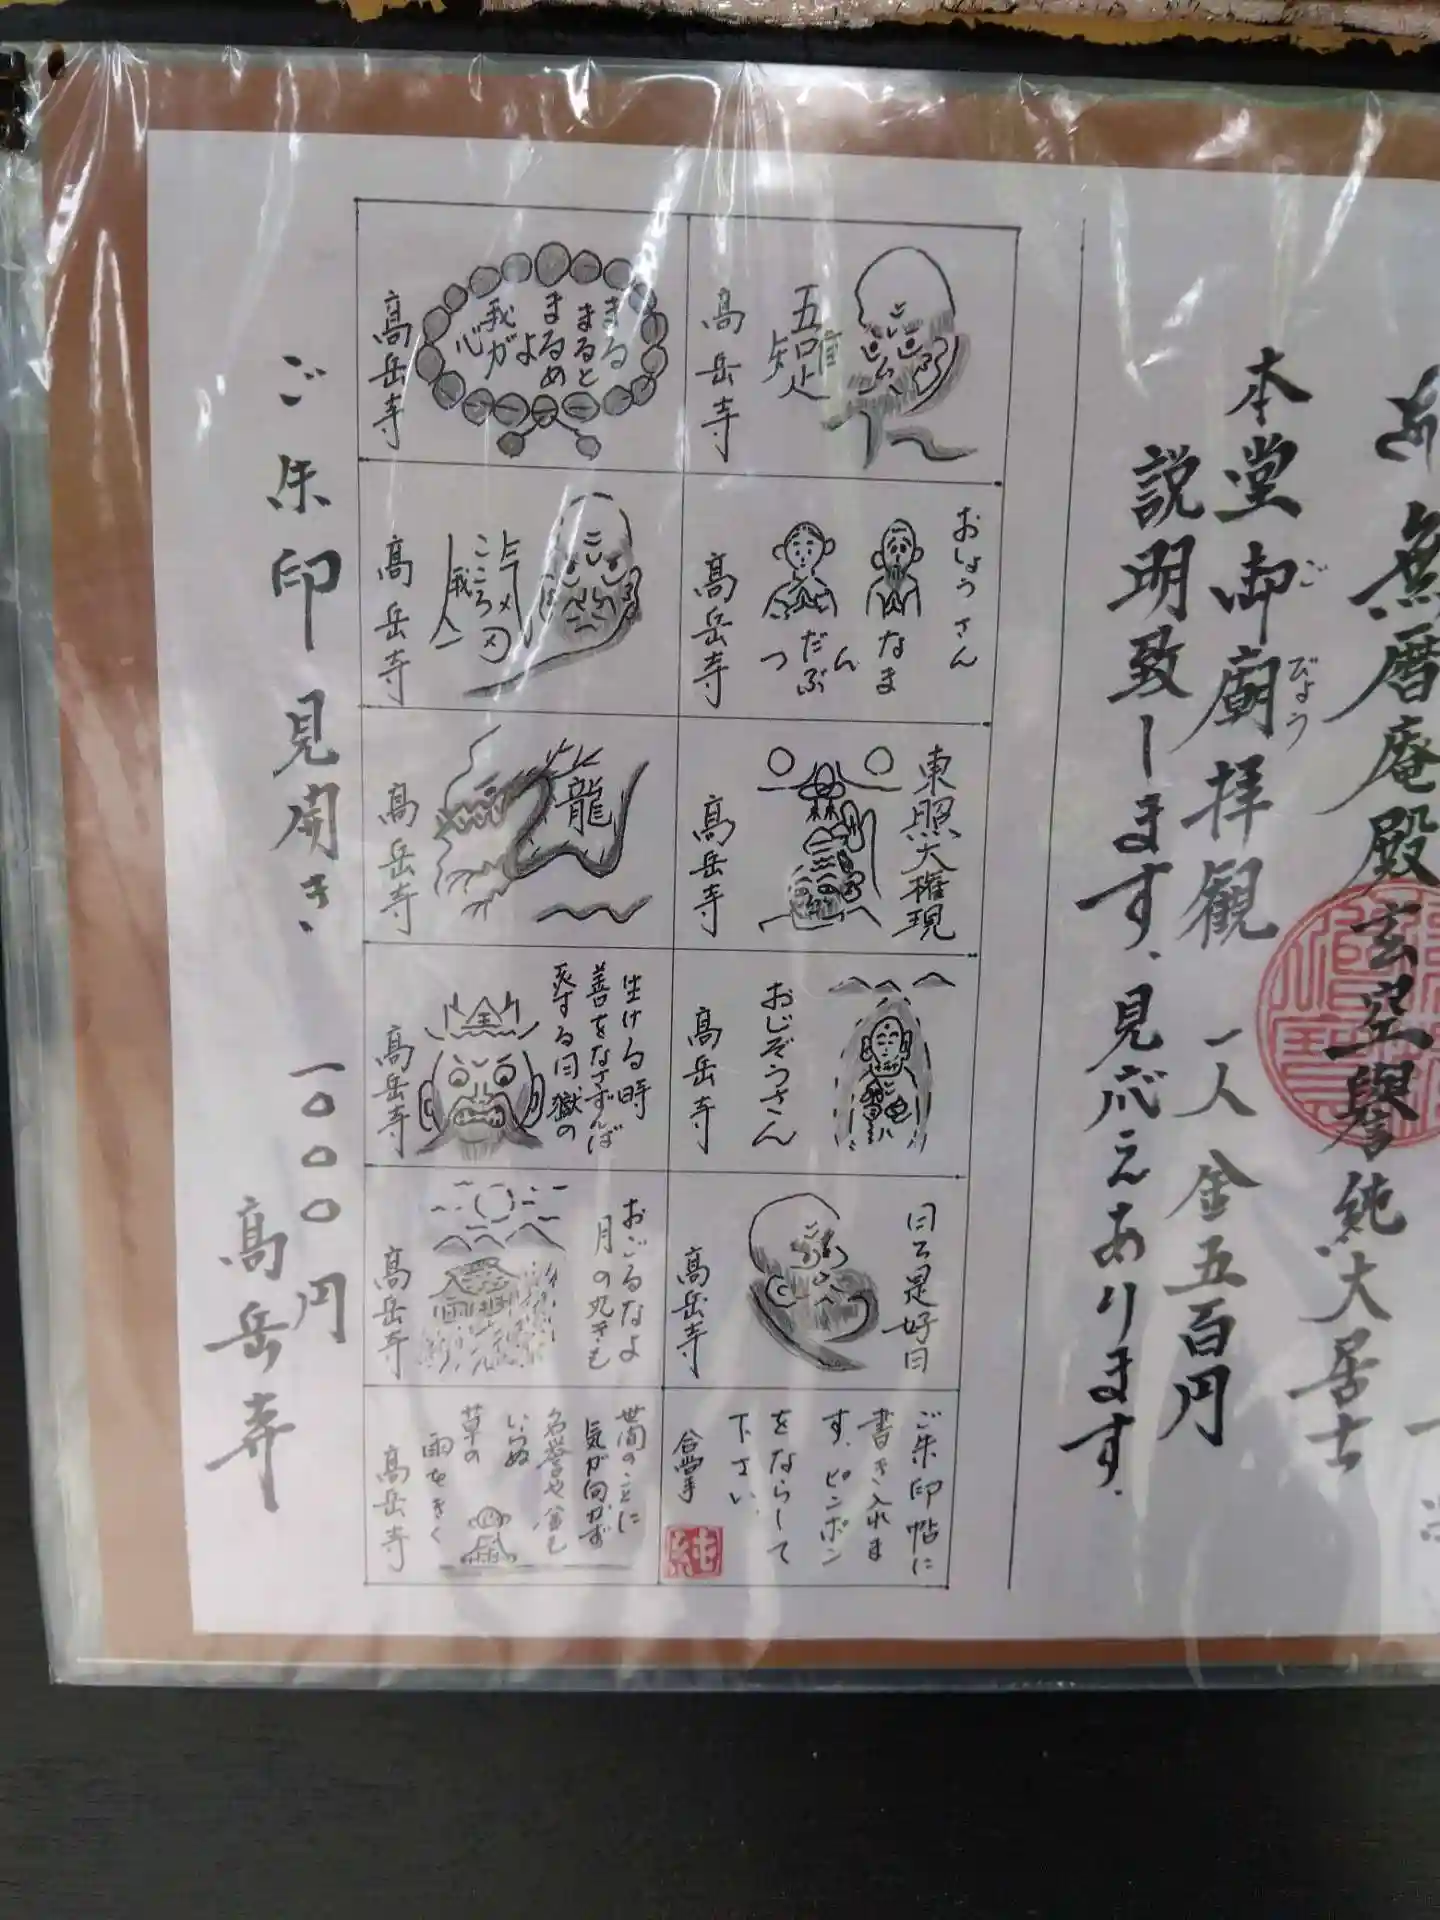 無暦庵殿玄空譽純大居士
本堂御廟拝観 一人 金五百円
ご びょう
説明致します、見応えあります。
五 知 隹 止
高岳寺
まるまると
まるめ
よ
我が
心
高岳寺
おしょうさん
なま
んだぶ
つ
高岳寺
こころ
我
高岳寺
東照大権現
高岳寺
龍
高岳寺
おじぞうさん
高岳寺
生ける時
善をなさずんば
死する日獄の
高岳寺
日々是好日
高岳寺
おごるなよ
月の丸きも
高岳寺
ご朱印帖に
書き入れま
す、ピンポン
をならして
下さい
合掌
純
世間のことに
気が向かず
名誉や金も
いらぬ
草の
雨をきく
高岳寺
ご朱印見開き
一〇〇〇円
高岳寺